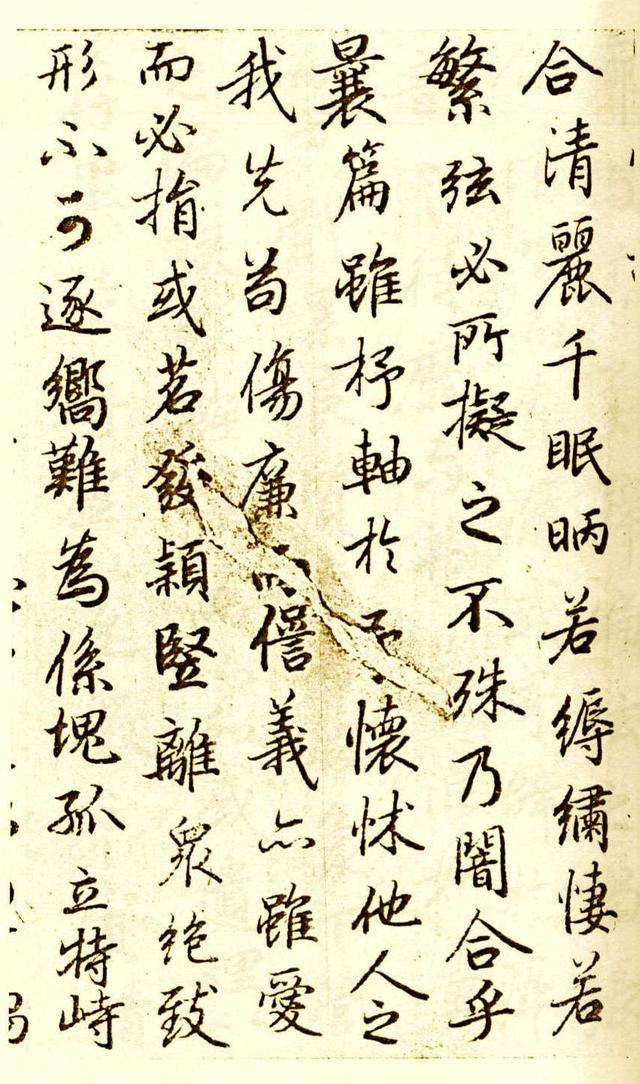 合清麗千眠昞若縟繡悽若
繁弦必所擬之不殊乃闇合乎
曩篇雖杼軸於予懷怵他人之
我先苟傷廉而諐義亦雖愛
而必捐或苕發穎竪離衆絶致
形不可逐嚮難為係塊孤立特峙